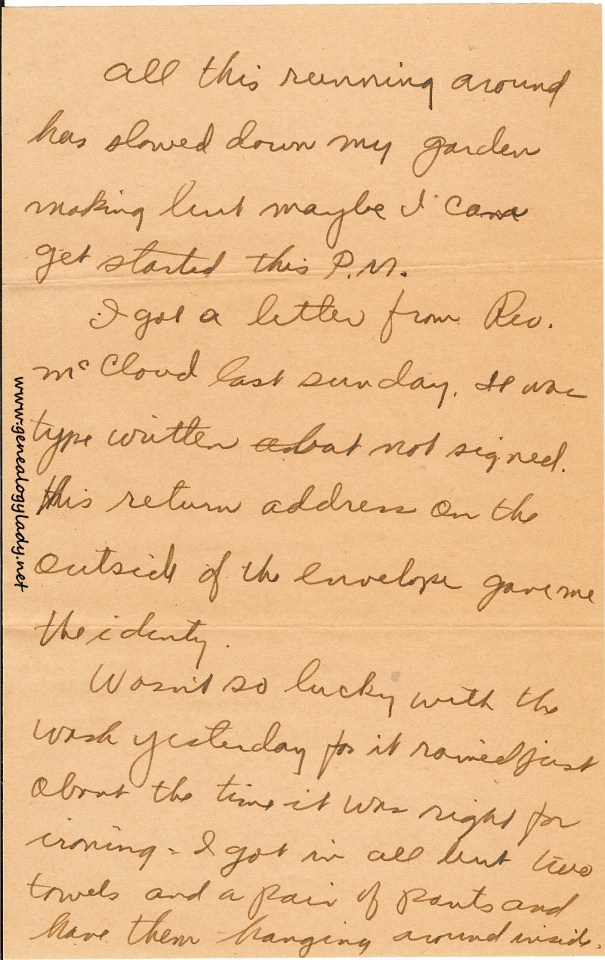 All this running around
has slowed down my garden
making but maybe I can
get started this P.M.
I got a letter from Rev.
McCloud last Sunday. It was
type written but not signed.
His return address on the
outside of the envelope gave me
the identy.
Wasn't so lucky with the
wash yesterday for it rained just
about the time it was right for
ironing - I got in all but two
towels and a pair of pants and
have them hanging around inside.
www.genealogylady.net